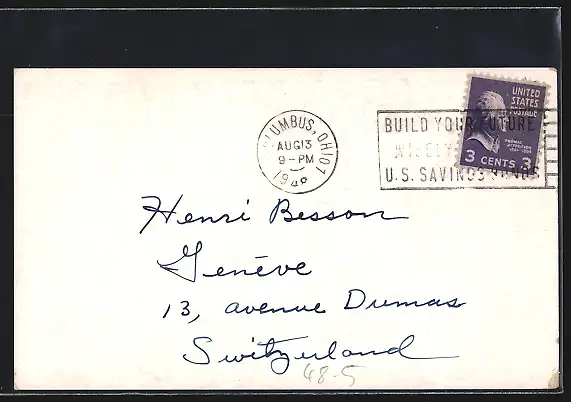 COLUMBUS, OHIO 1
AUG 13
9-PM
BUILD YOUR FUTURE
WISELY
U.S. SAVINGS BONDS
UNITED
STATES
POSTAGE
THOMAS
JEFFERSON
3 CENTS 3
Henri Besson
Genéve
13, avenue Dumas
Switzerland
48-5